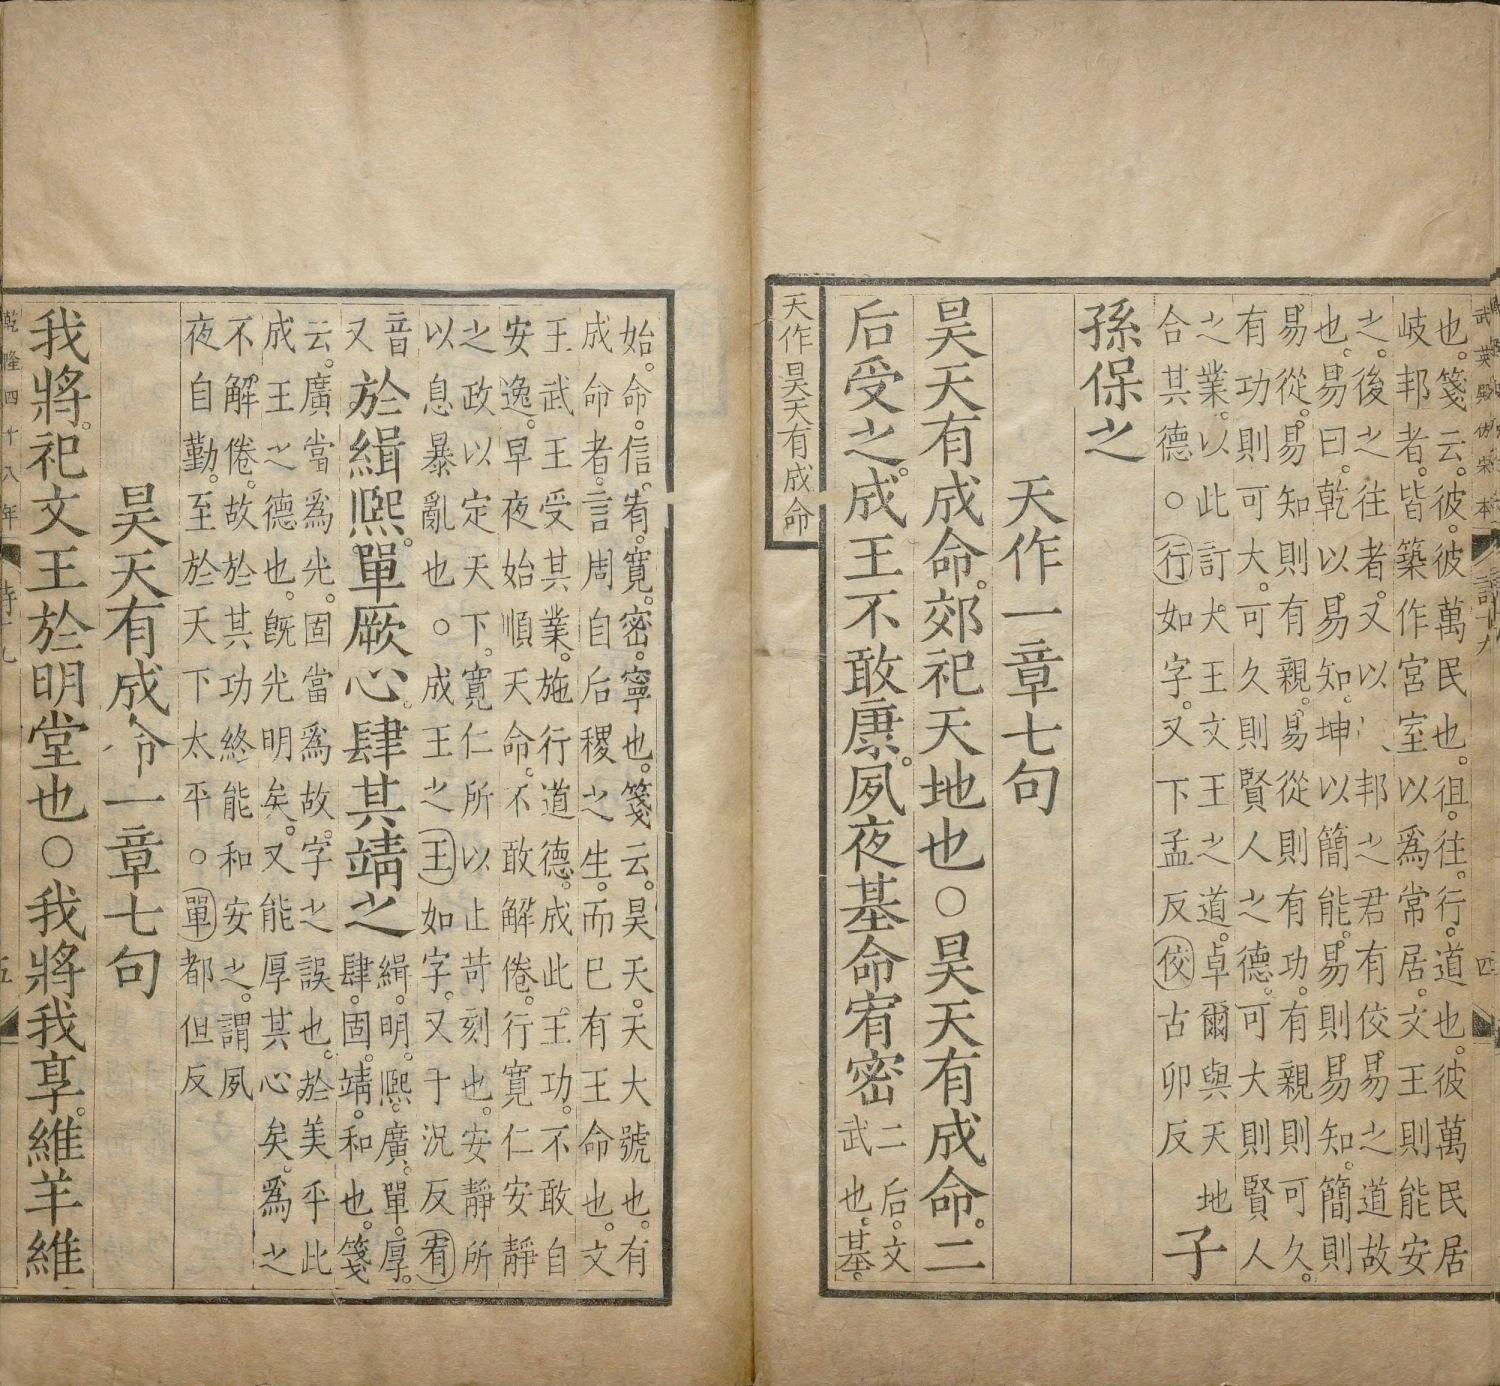 武英殿仿宋本
四
也。箋云。彼。彼萬民也。徂。往。行。道也。彼萬民居
岐邦者。皆築作宮室。以爲常居。文王則能安
之。後之往者。又以邦之君有佼易之道故
也。易曰。乾以易知。坤以簡能。易則易知。簡則
易從。易知則有親。易從則有功。有親則可久。
有功則可大。可久則賢人之德。可大則賢人
之業。以此訂大王文王之道。卓爾與天地
合其德○行如字。又下孟反佼古卯反
子
孫保之
天作一章七句
昊天有成命。郊祀天地也○昊天有成命。二
后受之。成王不敢康。夙夜基命宥密
二后。文
武也。基。
天作昊天有成命
始。命。信。宥。寬。密。寧也。箋云。昊天。天大號也。有
成命者。言周自后稷之生。而已有王命也。文
王武王受其業。施行道德。成此王功。不敢自
安逸。早夜始順天命。不敢解倦。行寬仁安靜
之政以定天下。寬仁所以止苛刻也。安靜所
以息暴亂也○成王之王如字。又于況反宥
音
又
於緝熙。單厥心。肆其靖之
緝。明。熙。廣。單。厚。
肆。固。靖。和也。箋
云。廣當爲光。固當爲故。字之誤也。於美乎此
成王之德也。旣光明矣。又能厚其心矣。爲之
不解倦。故於其功終能和安之。謂夙
夜自勤。至於天下太平○單都但反
昊天有成命一章七句
我將。祀文王於明堂也○我將我享。維羊維
乾隆四十八年
詩十九
五